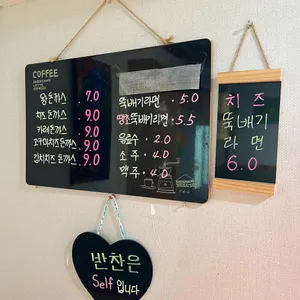 COFFEE
왕돈까스 7.0
치즈돈까스 9.0
카레돈까스 9.0
고구마치즈돈까스 9.0
김치치즈돈까스 9.0
뚝배기라면 5.0
뚝배기라면 5.5
음료수 2.0
소주 4.0
맥주 4.0
치즈
뚝배기
라면
6.0
반찬은
Self 입니다